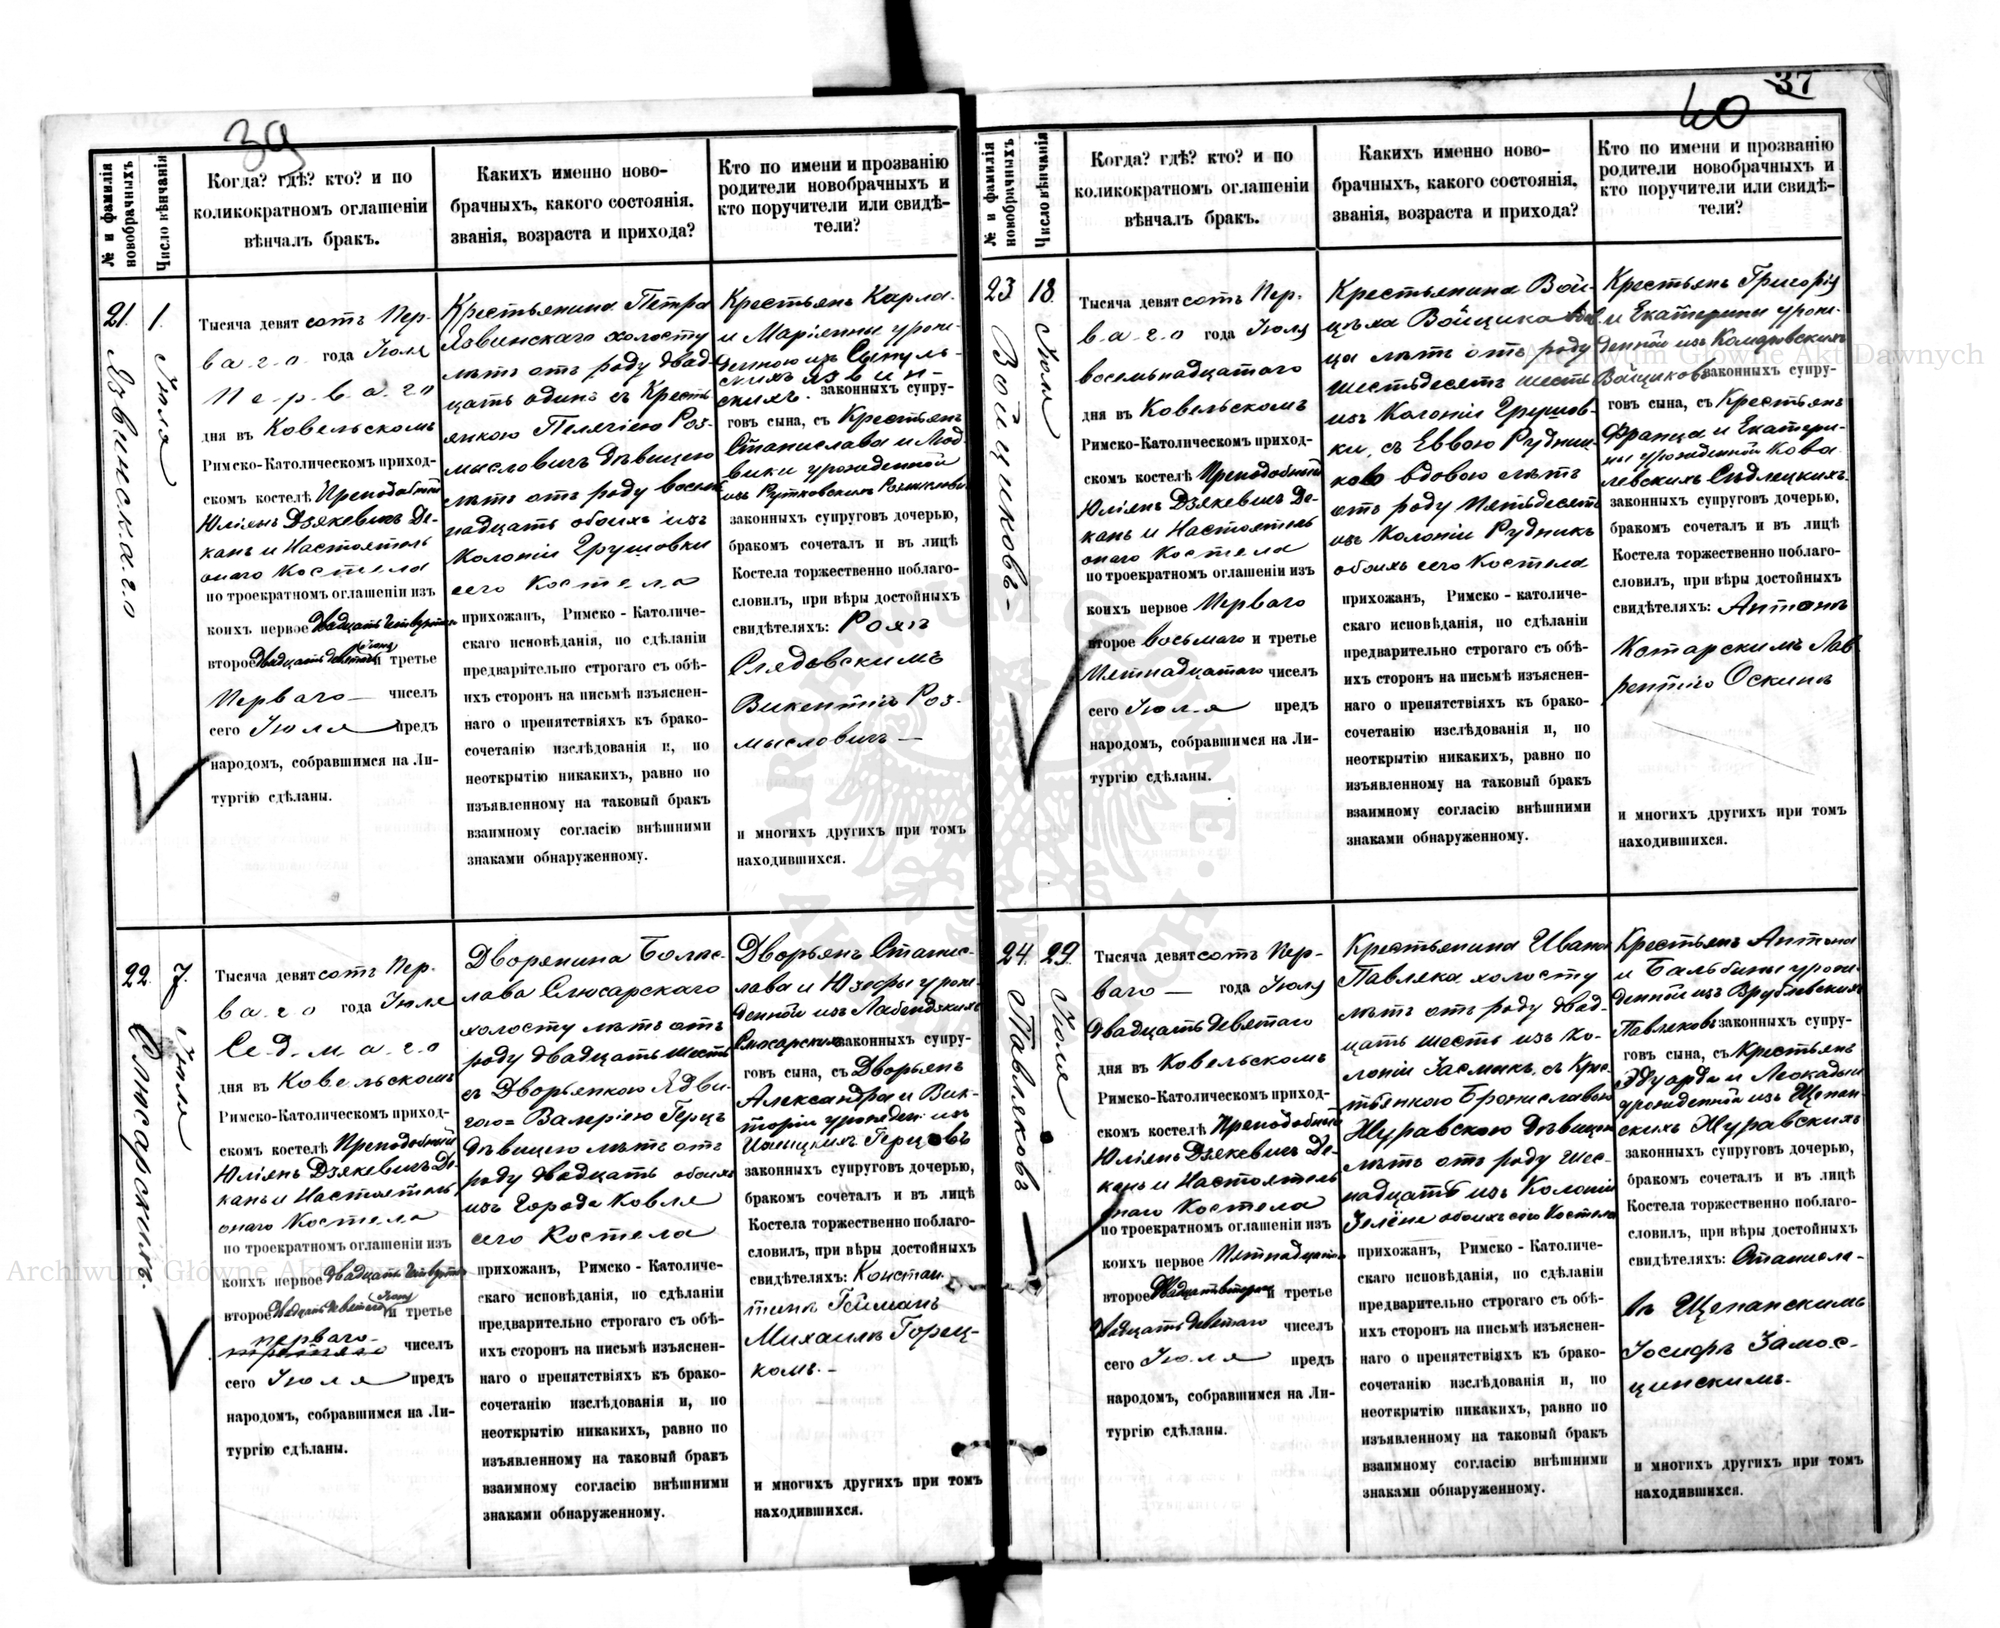 39
№ и фамилія новобрачныхъ
Число вѣнчанія
Когда? гдѣ? кто? и по
коликократномъ оглашеніи
вѣнчалъ бракъ.
Какихъ именно ново-
брачныхъ, какого состоянія,
званія, возраста и прихода?
Кто по имени и прозванію
родители новобрачныхъ и
кто поручители или свидѣ-
тели?
21.
Язвинскаго
1.
Іюля
Тысяча девятсотъ Пер-
ваго года Іюля
Перваго
дня въ Ковельскомъ
Римско-Католическомъ приход-
скомъ костелѣ Преподобный
Юліянъ Дзякевичъ Де-
канъ и Настоятель
онаго Костела
по троекратномъ оглашеніи изъ
коихъ первое Двадцать четвертаго
второе Двадцать девятаго Іюня и третье
Перваго чиселъ
сего Іюля предъ
народомъ, собравшимся на Ли-
тургію сдѣланы.
Крестьянина Петра
Язвинскаго холосту
лѣтъ отъ роду двад-
цать одинъ съ Кресть-
янкою Пелягіею Роз-
мысловичъ дѣвицею
лѣтъ отъ роду восем-
надцать обоихъ изъ
Колоніи Грушовки
сего Костела
прихожан, Римско-Католиче-
скаго исповѣданія, по сдѣланіи
предварительно строгаго съ обѣ-
ихъ сторонъ на письмѣ изъяснен-
наго о препятствіяхъ къ брако-
сочетанію изслѣдованія и, по
неоткрытію никакихъ, равно по
изъявленному на таковый бракъ
взаимному согласію внѣшними
знаками обнаруженному.
Крестьянъ Карла
и Маріянны урож-
денною изъ
Язвин-
скихъ законныхъ супру-
говъ сына, съ Крестьянъ
Станислава и Люд-
вики урожденной
изъ Рутковскихъ Розмысловичъ
законныхъ супруговъ дочерью,
бракомъ сочеталъ и въ лицѣ
Костела торжественно поблаго-
словилъ, при вѣры достойныхъ
свидѣтеляхъ: Рохъ
Слядовскимъ
Викентій Роз-
мысловичъ
и многихъ другихъ при томъ
находившихся.
22.
Слюсарскихъ.
7.
Іюля
Тысяча девятсотъ Пер-
ваго года Іюля
Седмаго
дня въ Ковельскомъ
Римско-Католическомъ приход-
скомъ костелѣ Преподобный
Юліянъ Дзякевичъ Де-
канъ и Настоятель
онаго Костела
по троекратномъ оглашеніи изъ
коихъ первое двадцать четвертаго
второе Двадцать девятаго Іюня и третье
перваго
третьяго чиселъ
сего Іюля предъ
народомъ, собравшимся на Ли-
тургію сдѣланы.
Дворянина Болес-
лава Слюсарскаго
холосту лѣтъ отъ
роду двадцать шесть
съ Дворянкою Ядви-
гою=Валеріею Герцъ
дѣвицею лѣтъ отъ
роду двадцать обоихъ
изъ Города Ковля
сего Костела
прихожан, Римско-Католиче-
скаго исповѣданія, по сдѣланіи
предварительно строгаго съ обѣ-
ихъ сторонъ на письмѣ изъяснен-
наго о препятствіяхъ къ брако-
сочетанію изслѣдованія и, по
неоткрытію никакихъ, равно по
изъявленному на таковый бракъ
взаимному согласію внѣшними
знаками обнаруженному.
Дворянъ Станис-
лава и Юзефы урож-
денной изъ Лабендзкихъ
Слюсарскихъ законныхъ супру-
говъ сына, съ Дворянъ
Александра и Вик-
торіи урожден. изъ
Герцовъ
законныхъ супруговъ дочерью,
бракомъ сочеталъ и въ лицѣ
Костела торжественно поблаго-
словилъ, при вѣры достойныхъ
свидѣтеляхъ: Констан-
тинъ Гейманъ
Михаилъ Горец-
комъ.
и многихъ другихъ при томъ
находившихся.
37
40
№ и фамилія новобрачныхъ
Число вѣнчанія
Когда? гдѣ? кто? и по
коликократномъ оглашеніи
вѣнчалъ бракъ.
Какихъ именно ново-
брачныхъ, какого состоянія,
званія, возраста и прихода?
Кто по имени и прозванію
родители новобрачныхъ и
кто поручители или свидѣ-
тели?
23
Войциковъ
18.
Іюля
Тысяча девятсотъ Пер-
ваго года Іюля
восемьнадцатаго
дня въ Ковельскомъ
Римско-Католическомъ приход-
скомъ костелѣ Преподобный
Юліянъ Дзякевичъ Де-
канъ и Настоятель
онаго Костела
по троекратномъ оглашеніи изъ
коихъ первое Перваго
второе восьмаго и третье
Пятнадцатаго чиселъ
сего Іюля предъ
народомъ, собравшимся на Ли-
тургію сдѣланы.
Крестьянина Вой-
цѣха Войцика вдов-
ца лѣтъ отъ роду
шестьдесятъ шесть
изъ Колоніи Грушов-
ки, съ Еввою Рудниц-
кою вдовою лѣтъ
отъ роду пятьдесятъ
изъ Колоніи Рудникъ
обоихъ сего Костела
прихожан, Римско-католиче-
скаго исповѣданія, по сдѣланіи
предварительно строгаго съ обѣ-
ихъ сторонъ на письмѣ изъяснен-
наго о препятствіяхъ къ брако-
сочетанію изслѣдованія и, по
неоткрытію никакихъ, равно по
изъявленному на таковый бракъ
взаимному согласію внѣшними
знаками обнаруженному.
Крестьянъ Григорія
и Екатерины урож-
денной изъ Комаровскихъ
Войциковъ законныхъ супру-
говъ сына, съ Крестьянъ
Франца и Екатери-
ны урожденной Кова-
левскихъ Сѣдлецкихъ
законныхъ супруговъ дочерью,
бракомъ сочеталъ и въ лицѣ
Костела торжественно поблаго-
словилъ, при вѣры достойныхъ
свидѣтеляхъ: Антонъ
Котарскимъ Лав-
рентіго Оскинъ
и многихъ другихъ при томъ
находившихся.
24.
Павляковъ
29.
Іюля
Тысяча девятсотъ Пер-
ваго года Іюля
двадцать девятаго
дня въ Ковельскомъ
Римско-Католическомъ приход-
скомъ костелѣ Преподобный
Юліянъ Дзякевичъ Де-
канъ и Настоятель
онаго Костела
по троекратномъ оглашеніи изъ
коихъ первое Пятнадцатаго
второе Двадцать втораго и третье
двадцать девятаго чиселъ
сего Іюля предъ
народомъ, собравшимся на Ли-
тургію сдѣланы.
Крестьянина Ивана
Павляка холосту
лѣтъ отъ роду двад-
цать шесть изъ Ко-
лоніи Засмыкъ, съ Крес-
тьянкою Брониславою
Журавскою дѣвицею
лѣтъ отъ роду шес-
надцать изъ Колоніи
Зелёне обоихъ сего Костела
прихожан, Римско-Католиче-
скаго исповѣданія, по сдѣланіи
предварительно строгаго съ обѣ-
ихъ сторонъ на письмѣ изъяснен-
наго о препятствіяхъ къ брако-
сочетанію изслѣдованія и, по
неоткрытію никакихъ, равно по
изъявленному на таковый бракъ
взаимному согласію внѣшними
знаками обнаруженному.
Крестьянъ Антона
и Бальбины урож-
денной изъ Врублевскихъ
Павляковъ законныхъ супру-
говъ сына, съ Крестьянъ
Эдуарда и Леокадыи
урожденной изъ Щепан-
скихъ Журавскихъ
законныхъ супруговъ дочерью,
бракомъ сочеталъ и въ лицѣ
Костела торжественно поблаго-
словилъ, при вѣры достойныхъ
свидѣтеляхъ: Станисла-
въ Щепанскимъ
Іосифъ Замос-
цинскимъ.
и многихъ другихъ при томъ
находившихся.
Archiwum Główne Akt Dawnych
Archiwum Główne Akt Dawnych
ARCHIWUM GŁÓWNE AKT DAWNYCH